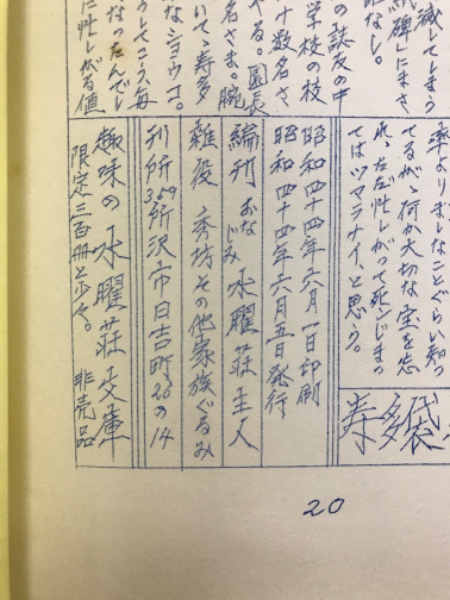 滅してしまう
碑」にまさ
なし。
の誌友の中
学校の校
十数名さ
やる。園長
名さま。腕
いて、寿多
なショウコ。
うしてコース毎
なったんでし
に惜しがる値
率よりましなことぐらい知っ
てるが、何か大切な宝を忘
れ、ただ惜しがって死ンじまっ
てはツマラナイ、と思う。
寿多袋
昭和四十四年六月一日印刷
昭和四十四年六月五日発行
編刊 おなじみ 水曜荘主人
雑役 秀坊その他家族ぐるみ
刊所 359 所沢市日吉町20の14
趣味の水曜荘文庫
限定三百冊と少々。 非売品
20